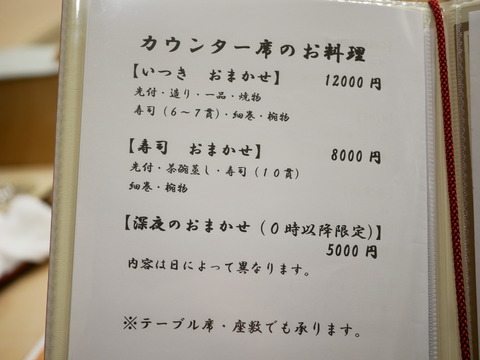 カウンター席のお料理
【いつき　おまかせ】　12000円
先付・造り・一品・焼物
寿司（６～７貫）・細巻・椀物
【寿司　おまかせ】　8000円
先付・茶碗蒸し・寿司（１０貫）
細巻・椀物
【深夜のおまかせ（０時以降限定）】
5000円
内容は日によって異なります。
※テーブル席・座敷でも承ります。